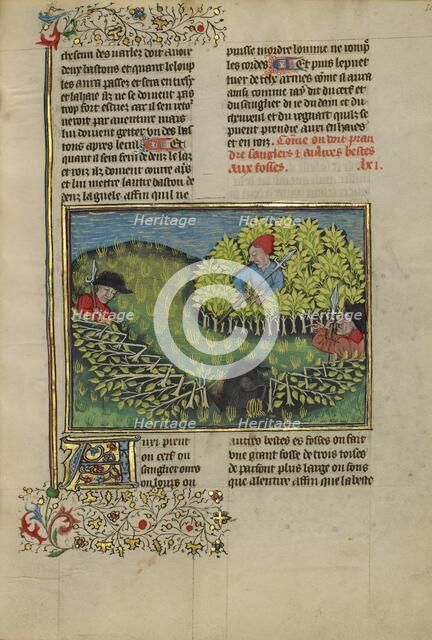 chescun des varlez doit avoir
deux bastons et quant le loup
les aura passez et sera entre hy
et la haie ilz ne se doivent pas
trop fort escrier car il sen retor
neroit par aventure mais
lui doivent getter un des bas
tons apres le cul. Et
quant il sera feru dedenz le laz
et roiz ilz doivent courre aps
et lui mettre lautre baston de
denz la guele affin quil ne
puisse mordre lomme ne romp
les cordes Et puis le puet
tuer de telz armes come il aura
ainsi comme jay dit du cerf et
du sanglier di je du dain et du
chevreul et du regnart quilz se
peuent prendre aux en haies
et en roiz. Come on doit pran
dre sangliers et autres bestes
aux fosses. lxi.
Heritage
Heritage
Heritage
Heritage
Heritage
Heritage
Heritage
Auxi prent
on cerf ou
sanglier ours
ou loups ou
autres bestes es fosses on fait
une grant fosse de trois toises
de parfont plus large ou fons
que alentree affin que la beste